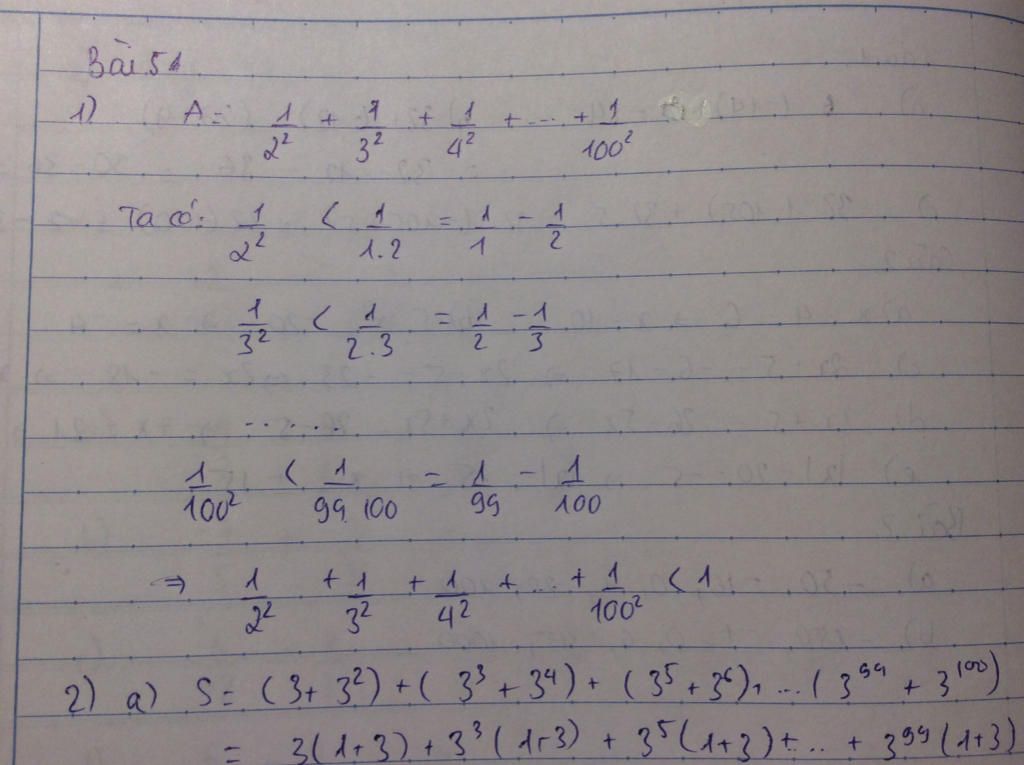 Bài 51
1) A = 1/2² + 1/3² + 1/4² + ... + 1/100²
Ta có: 1/2² < 1/1.2 = 1/1 - 1/2
1/3² < 1/2.3 = 1/2 - 1/3
.......
1/100² < 1/99.100 = 1/99 - 1/100
⇒ 1/2² + 1/3² + 1/4² + ... + 1/100² < 1
2) a) S = (3 + 3²) + (3³ + 3⁴) + (3⁵ + 3⁶) + ... (3⁹⁹ + 3¹⁰⁰)
= 3(1+3) + 3³(1+3) + 3⁵(1+3) + .. + 3⁹⁹(1+3)